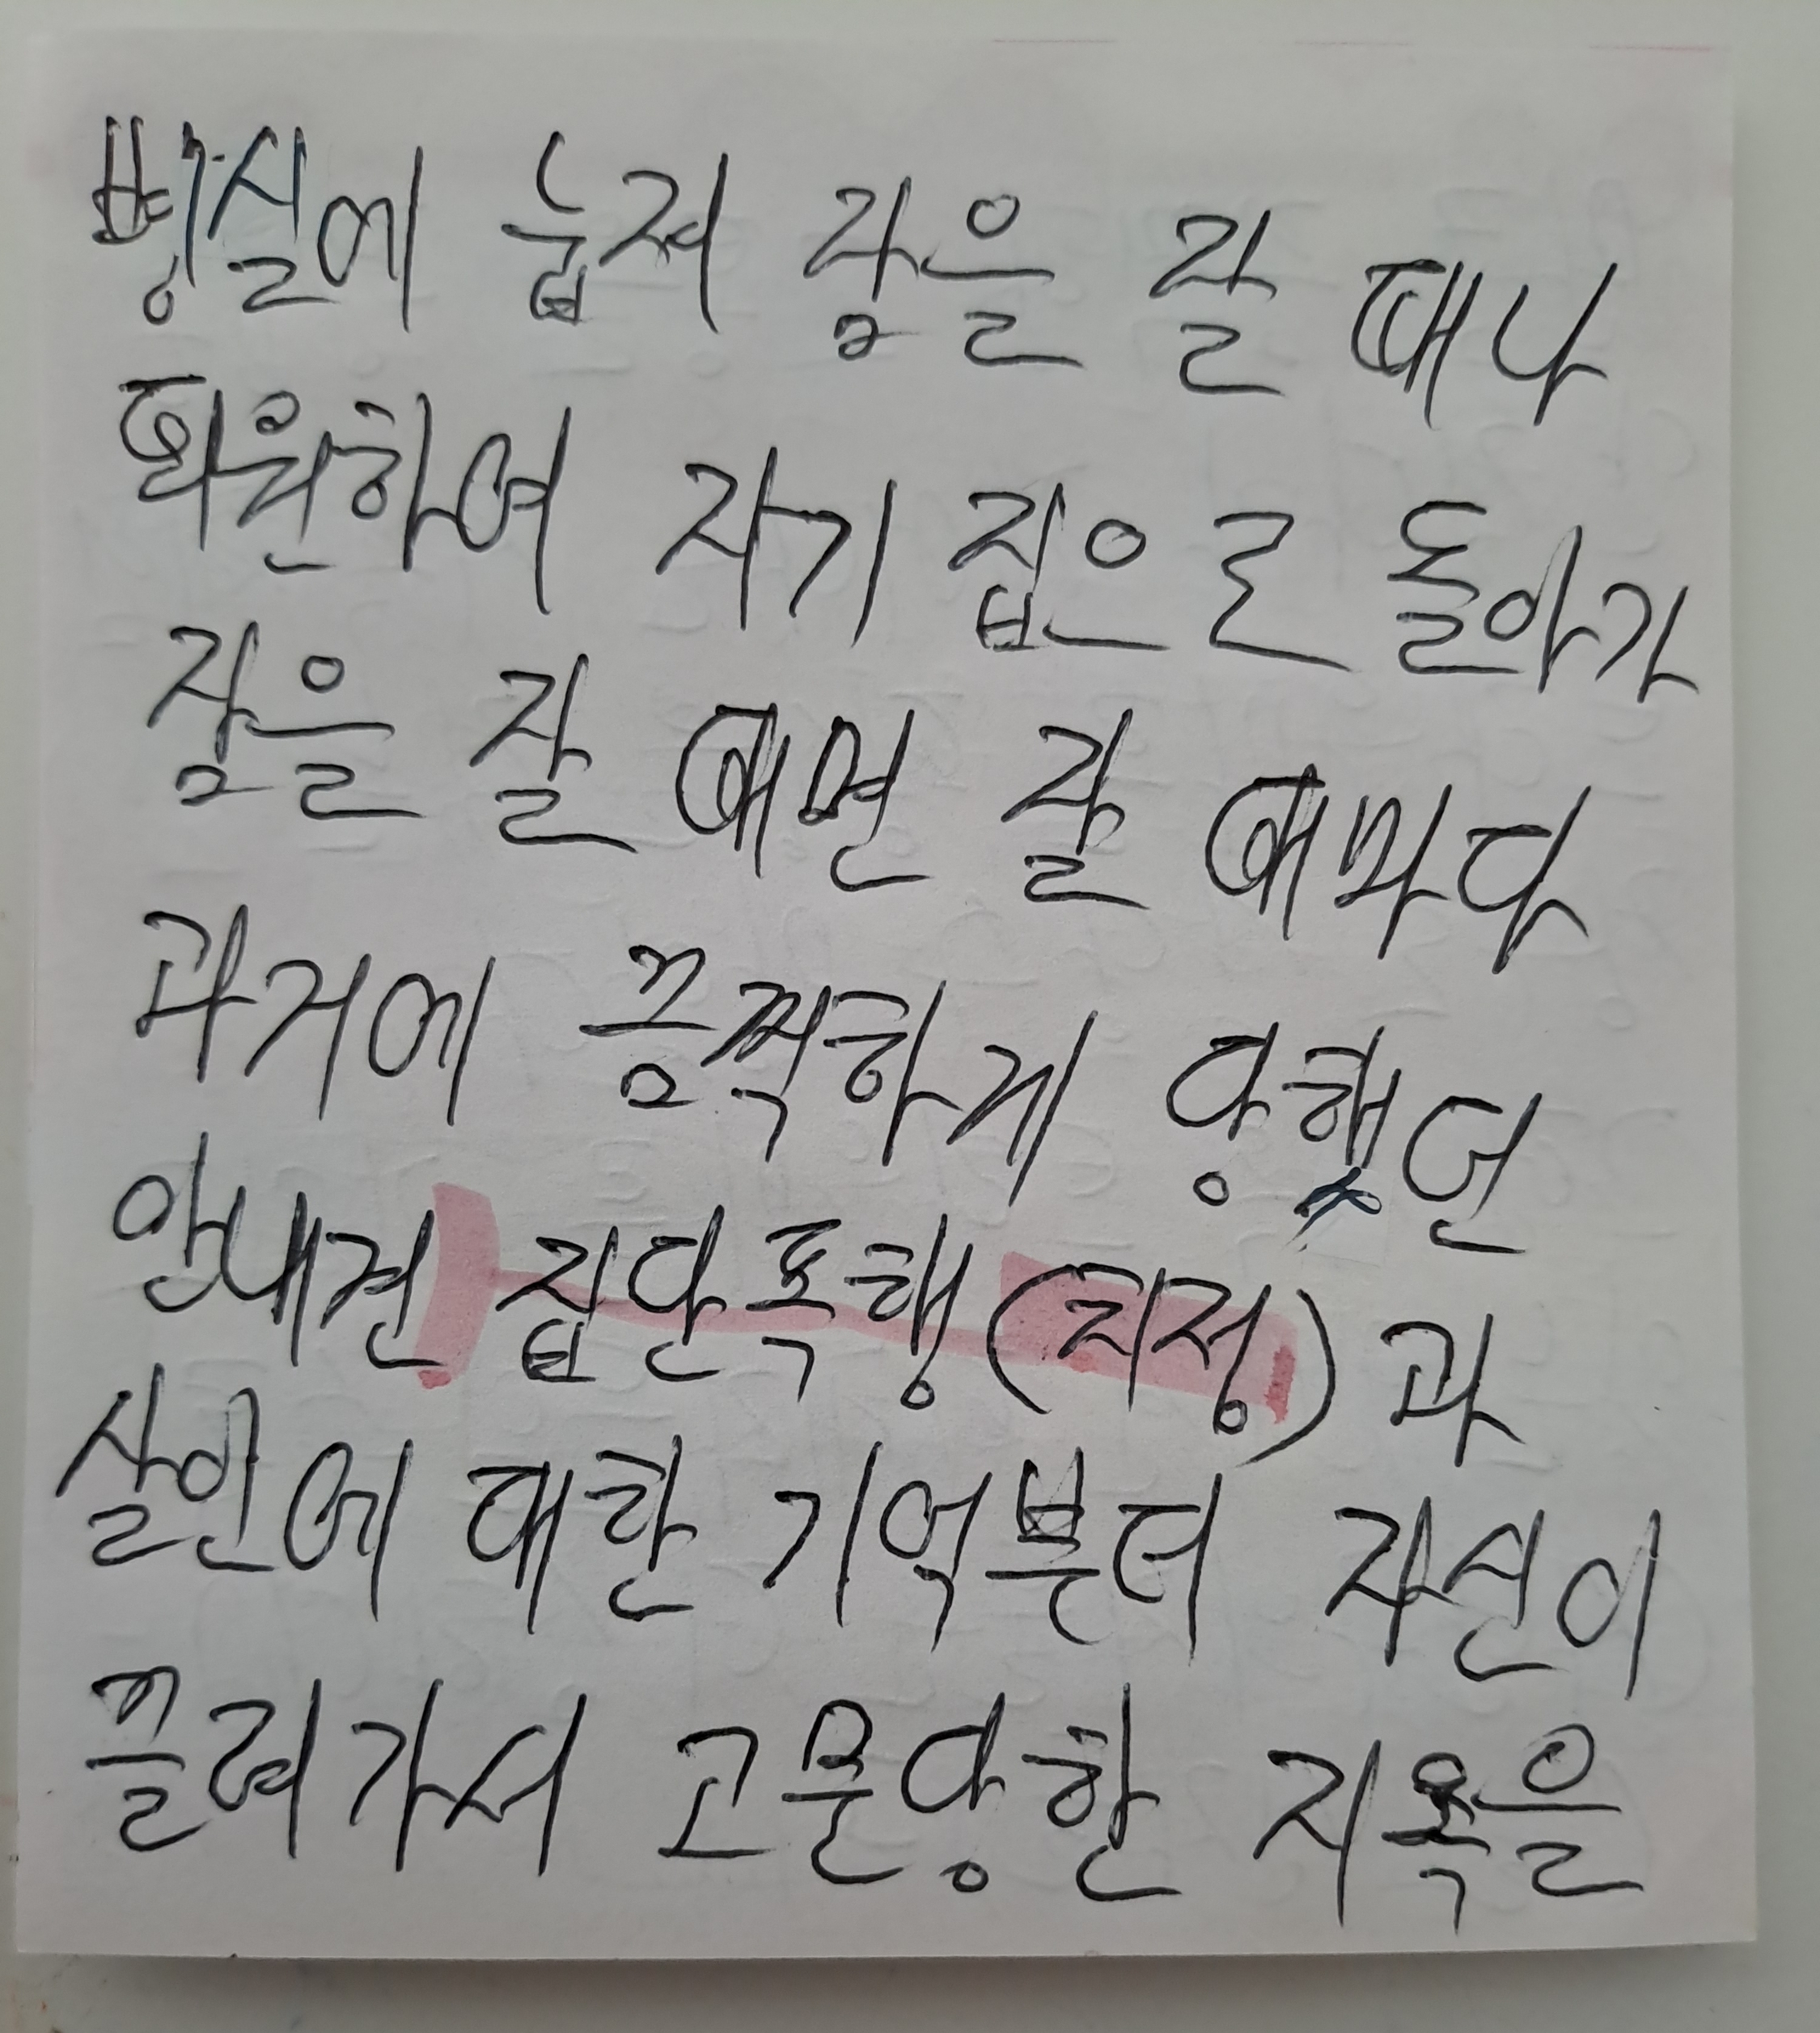 병실에 눕져 잠을 잘 때나
퇴원하여 자기 집으로 돌아가
잠을 잘 때면 잘 때마다
과거에 끔찍하게 당했던
안내견 집단폭행(치정)과
살인에 대한 기억부터 자신이
끌려가서 고문당한 지옥을